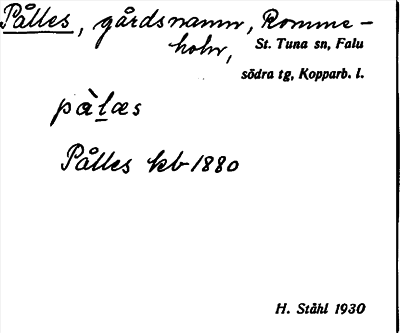 Pålles, gårdsnamn, Romme-
holn, St. Tuna sn, Falu
södra tg, Kopparb. l.
pàḻæs
Pålles kb 1880
H. Ståhl 1930